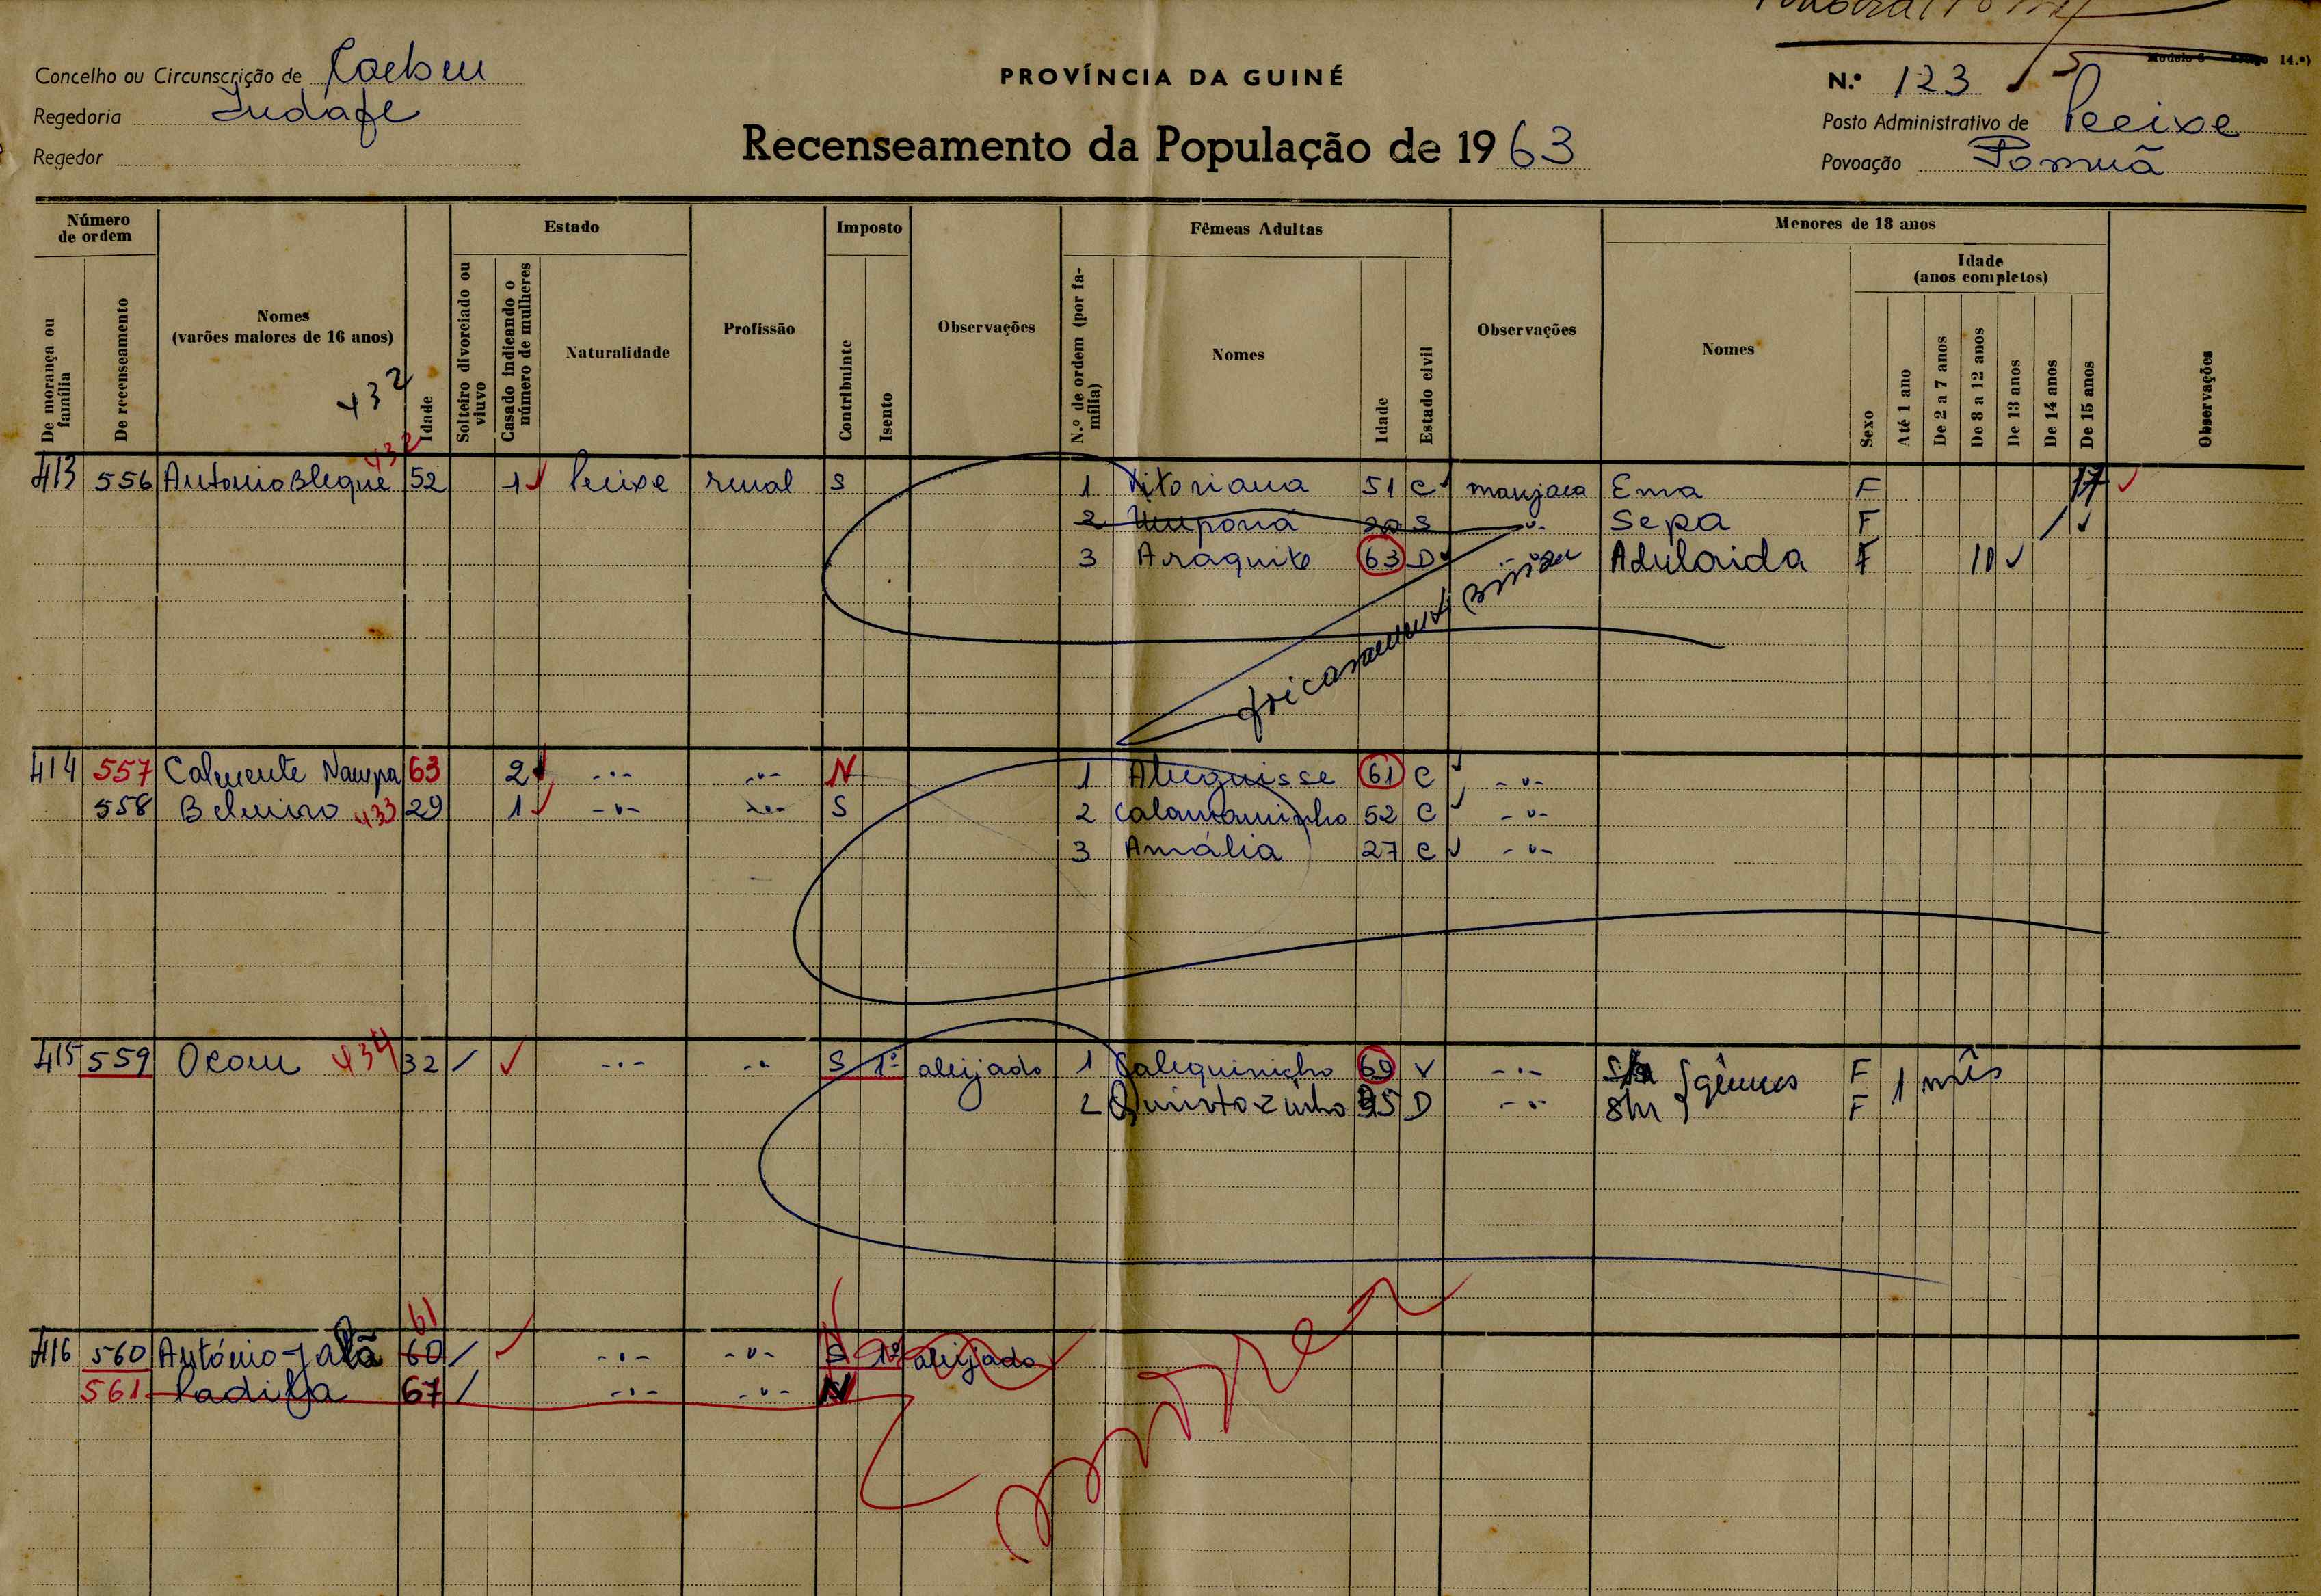 Concelho ou Circunscrição de Caebeu
Regedoria Indafe
Regedor
PROVÍNCIA DA GUINÉ
Recenseamento da População de 1963
14.º)
N.º 123
Posto Administrativo de Pecixe
Povoação Pomuã
Número de ordem
De morança ou família
De recenseamento
Nomes (varões maiores de 16 anos)
432
432
Idade
Estado
Solteiro divorciado ou viuvo
Casado indicando o número de mulheres
Naturalidade
Profissão
Imposto
Contribuinte
Isento
Observações
Fêmeas Adultas
N.º de ordem (por família)
Nomes
Idade
Estado civil
Observações
Menores de 18 anos
Nomes
Sexo
Idade (anos completos)
Até 1 ano
De 2 a 7 anos
De 8 a 12 anos
De 13 anos
De 14 anos
De 15 anos
Observações
413 556 Antonio Bleque 52 1 Pecixe rural S 1 Vitoriana 51 C manjaca Ema F 17
2 Umponá 20 S -"- Sepa F /
3 Araquite 63 D -"- Adelaida F 10
414 557 Calmente Nampa 63 2 -"- -"- N 1 Aleguisse 61 C -"-
558 Belmiro 433 29 1 -"- -"- S 2 Calamaminho 52 C -"-
3 Amália 27 C -"-
415 559 Ocam 434 32 / -"- -"- S 1º aleijado 1 Calequinicho 69 V -"- S/n gêmeos F 1 mês
2 Quintozinho D -"- S/n F
61
416 560 António Jalã 60 / -"- -"- S 1º aleijado
561 Padilha 67 / -"- -"- N